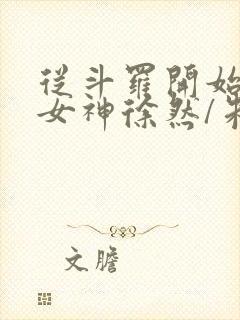 從斗羅開始
女神徐然/朱
文膽